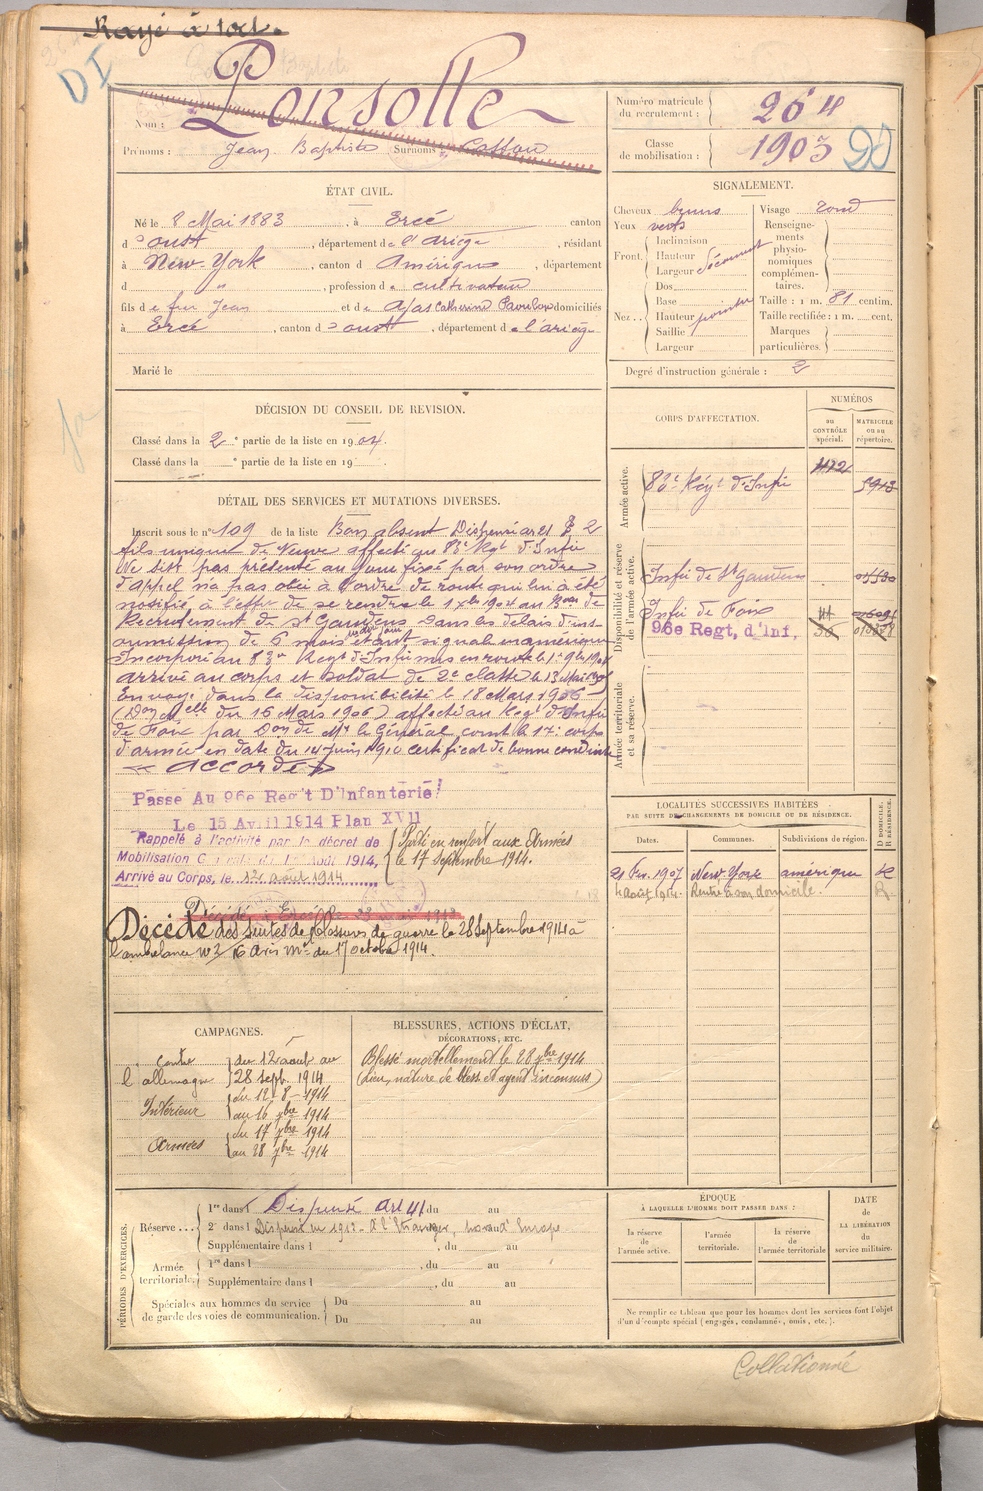 Rayé à tort.
DI
Ponsolle
Nom :
Prénoms : Jean Baptiste Surnoms :
Numéro matricule du recrutement : 264
Classe de mobilisation : 1903
ÉTAT CIVIL.
Né le 8 Mai 1883, à Ercé canton
d'Oust, département de l'Ariège, résidant
à New-York, canton d Amérique, département
d ", profession de cultivateur
fils de feu Jean et de Ajas Catherine domiciliés
à Ercé, canton d'Oust, département de l'Ariège
Marié le
SIGNALEMENT.
Cheveux bruns Visage rond
Yeux verts Renseignements physionomiques complémentaires.
Front. Inclinaison
Hauteur
Largeur
Nez. Dos
Base
Hauteur
Saillie
Largeur
Taille : 1 m. 81 centim.
Taille rectifiée : 1 m. cent.
Marques particulières.
Degré d'instruction générale : 2
DÉCISION DU CONSEIL DE REVISION.
Classé dans la 2e partie de la liste en 1904.
Classé dans la e partie de la liste en 19 .
DÉTAIL DES SERVICES ET MUTATIONS DIVERSES.
Inscrit sous le n° 109 de la liste Bon absent Dispensé art 21 § 2
fils unique de Veuve affecté au 83e Regt d'Infie
Ne s'est pas présenté au jour fixé par son ordre
d'appel n'a pas obéi à l'ordre de route qui lui a été
notifié, à l'effet de se rendre le 1 Xbre 1904 au Bau de
Recrutement de St Gaudens dans les délais d'in
soumission de 6 mois étant signalé en Amérique
Incorporé au 83e Regt d'Infie mis en route le 1er 9bre 1904
arrivé au corps et soldat de 2e classe le 13
Envoyé dans la disponibilité le 18 Mars 1906
(Don Melle du 16 Mars 1906) affecté au Regt d'Infie
de Foix par Don de Mr le Général comt le 17e corps
d'armée en date du 14 Juin 1910 certificat de bonne conduite
« Accordé »
Passé Au 96e Reg't D'Infanterie
Le 15 Avril 1914 Plan XVII
Rappelé à l'activité par le décret de
Mobilisation Générale du 1er Août 1914,
Arrivé au Corps, le 12 août 1914
Parti en renfort aux Armées
le 17 Septembre 1914.
Décédé des suites de blessures de guerre le 28 Septembre 1914 à
l'ambulance n° 3/16 avis mel du 17 octobre 1914.
CORPS D'AFFECTATION.
NUMÉROS
au CONTRÔLE spécial.
MATRICULE ou au répertoire.
Armée active.
83e Régt d'Infie 1172 5913
Disponibilité et réserve de l'armée active.
Infie de St Gaudens
Infie de Foix
96e Regt, d'Inf.
Armée territoriale et sa réserve.
LOCALITÉS SUCCESSIVES HABITÉES
PAR SUITE DE CHANGEMENTS DE DOMICILE OU DE RÉSIDENCE.
Dates. Communes. Subdivisions de région. D DOMICILE. R RÉSIDENCE.
21 Fév. 1907 New-York Amérique R
4 août 1914 Rentre à son domicile. R
CAMPAGNES.
Contre l'allemagne du 12 août au 28 sept. 1914
Intérieur du 12-8-1914 au 16 7bre 1914
Armées du 17 7bre 1914 au 28 7bre 1914
BLESSURES, ACTIONS D'ÉCLAT,
DÉCORATIONS, ETC.
Blessé mortellement le 28 7bre 1914
(Lieu, nature de bless et agent inconnus)
PÉRIODES D'EXERCICES.
Réserve ... 1re dans l Dispensé Art 41 du au
2e dans l Dispensé en 1912 - à l'Etranger, hors d'Europe
Supplémentaire dans l , du au
Armée territoriale. 1re dans l , du au
Supplémentaire dans l , du au
Spéciales aux hommes du service de garde des voies de communication. Du au
Du au
ÉPOQUE
À LAQUELLE L'HOMME DOIT PASSER DANS :
la réserve de l'armée active. l'armée territoriale. la réserve de l'armée territoriale
DATE DE LA LIBÉRATION du service militaire.
Ne remplir ce tableau que pour les hommes dont les services font l'objet
d'un décompte spécial (engagés, condamnés, omis, etc.).
Collationné